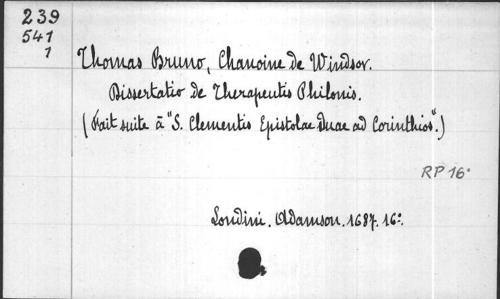 239
541
1
Thomas Bruno, Chanoine de Windsor.
Dissertatio de Therapeutis Philonis.
(Fait suite à "S. Clementis Epistolae duae ad Corinthios".)
RP 16°
Londini. Adamson. 1687. 16°.